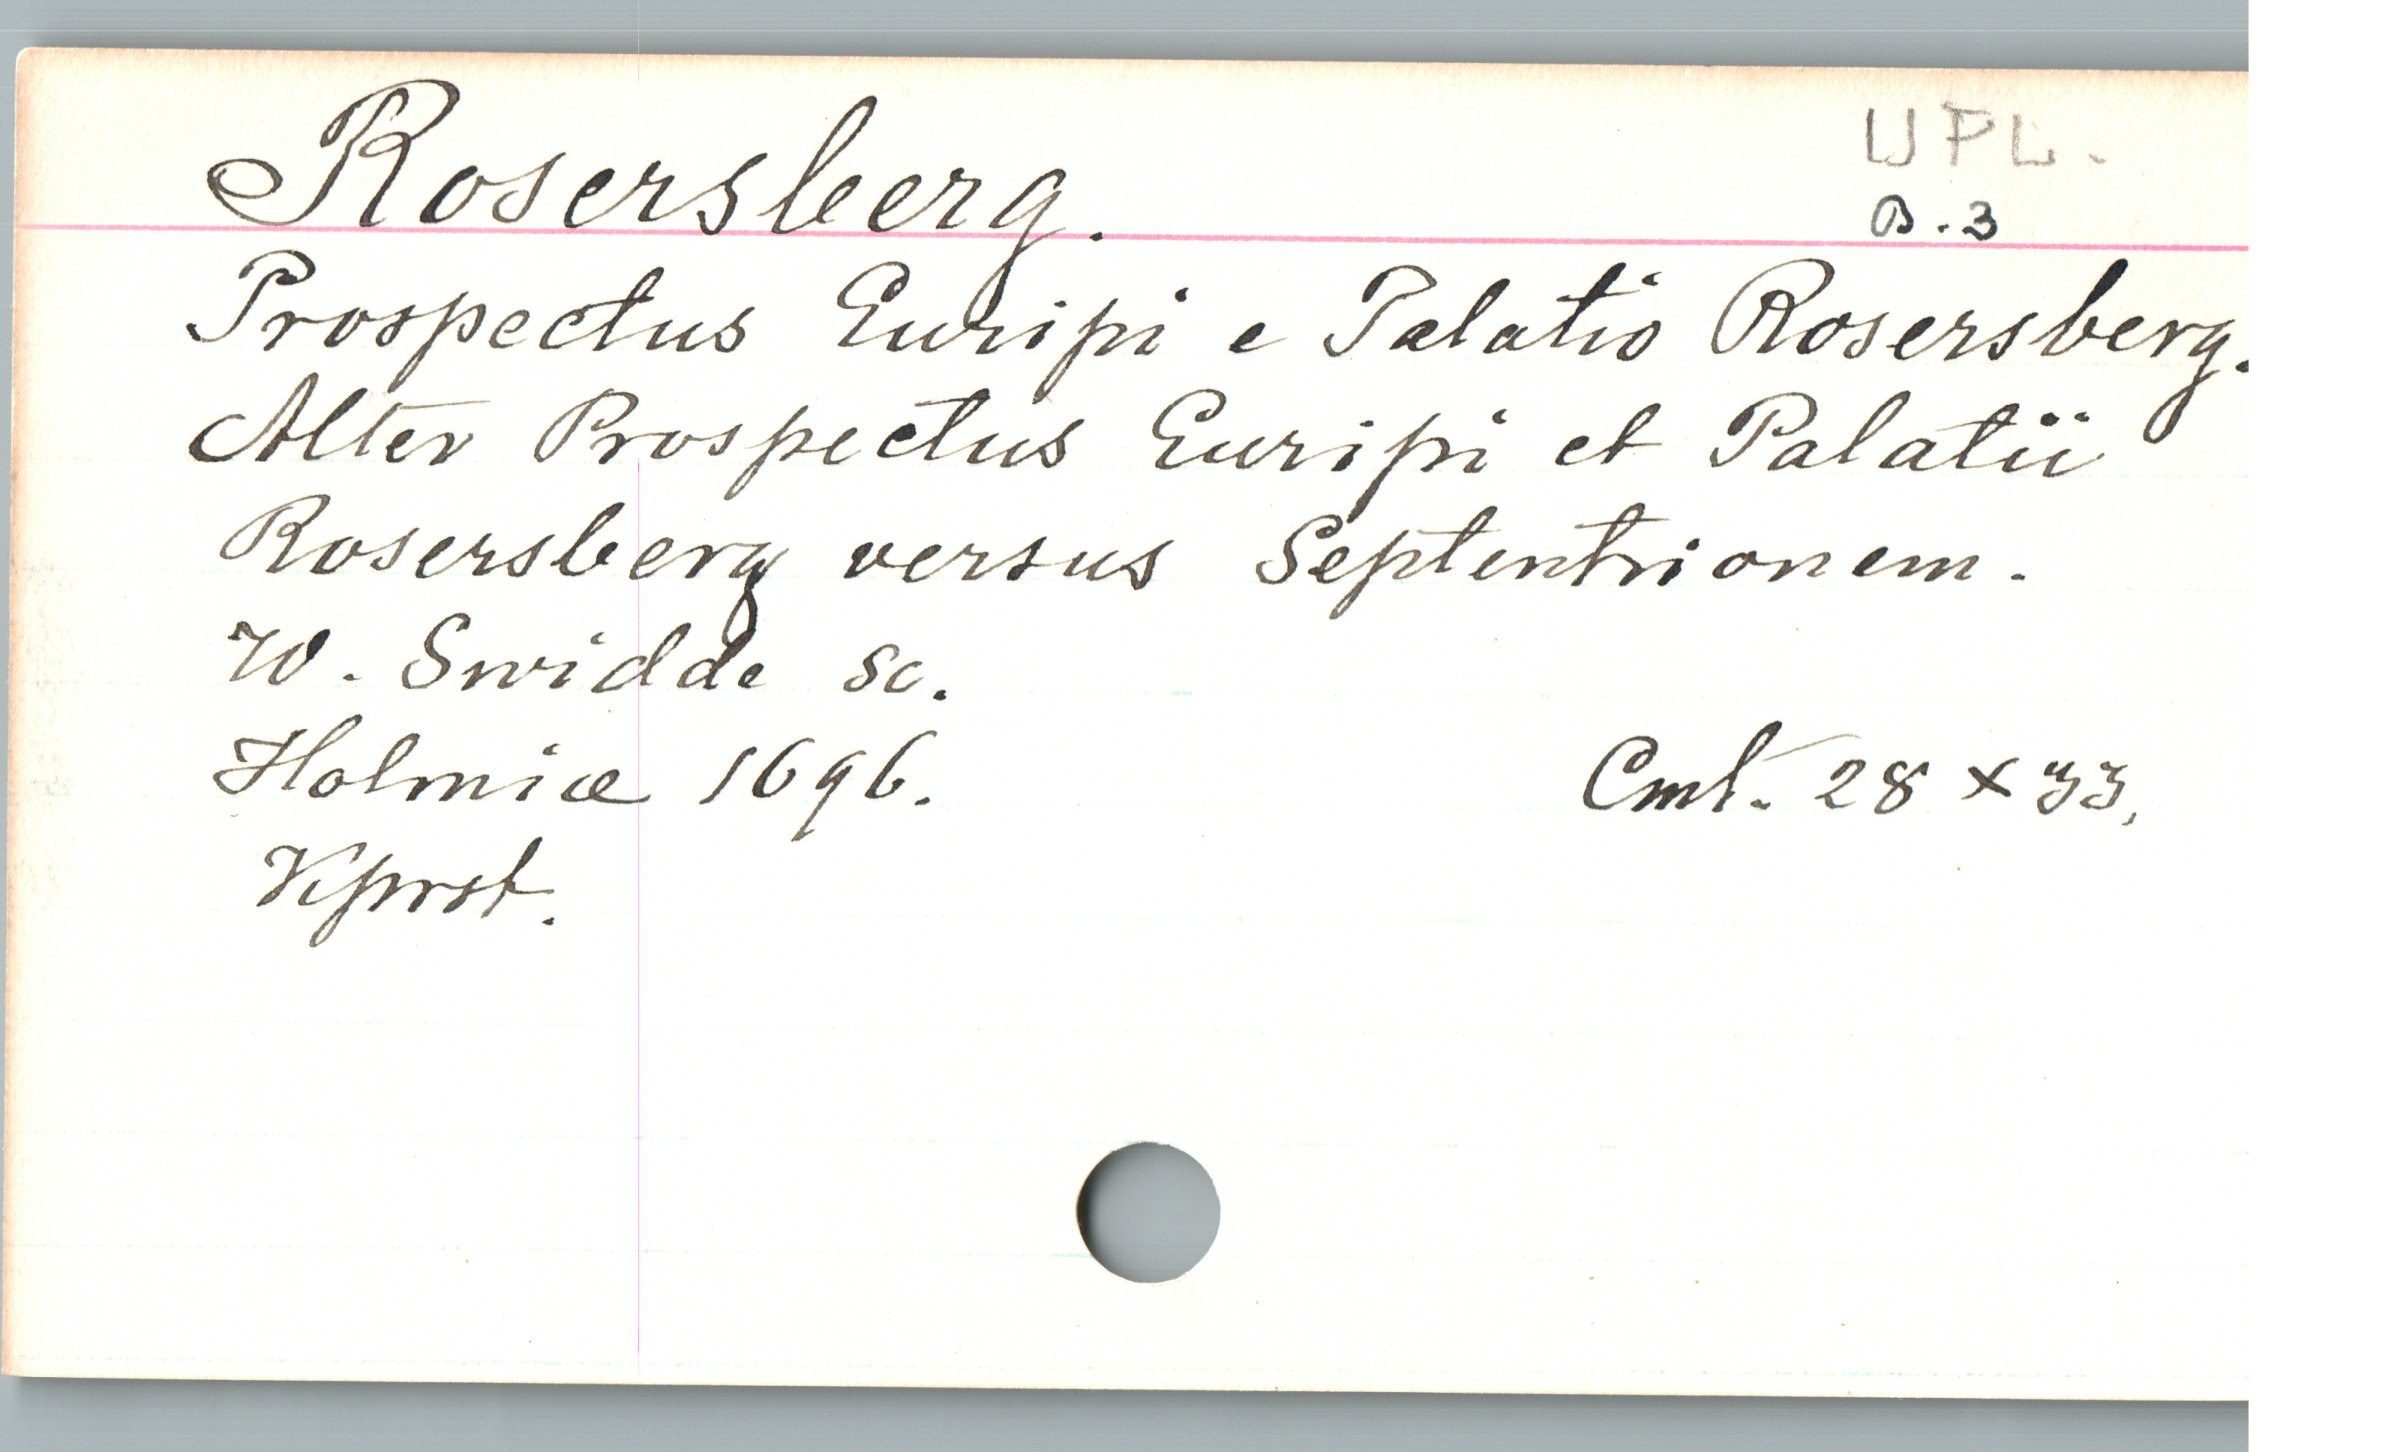 Rosersberg.
UPL.
B.3
Prospectus Euripi e Palatio Rosersberg.
Alter Prospectus Euripi et Palatii
Rosersberg versus Septentrionem.
W. Swidde sc.
Holmiæ 1696.
Cmt. 28 x 33,
Kprst.